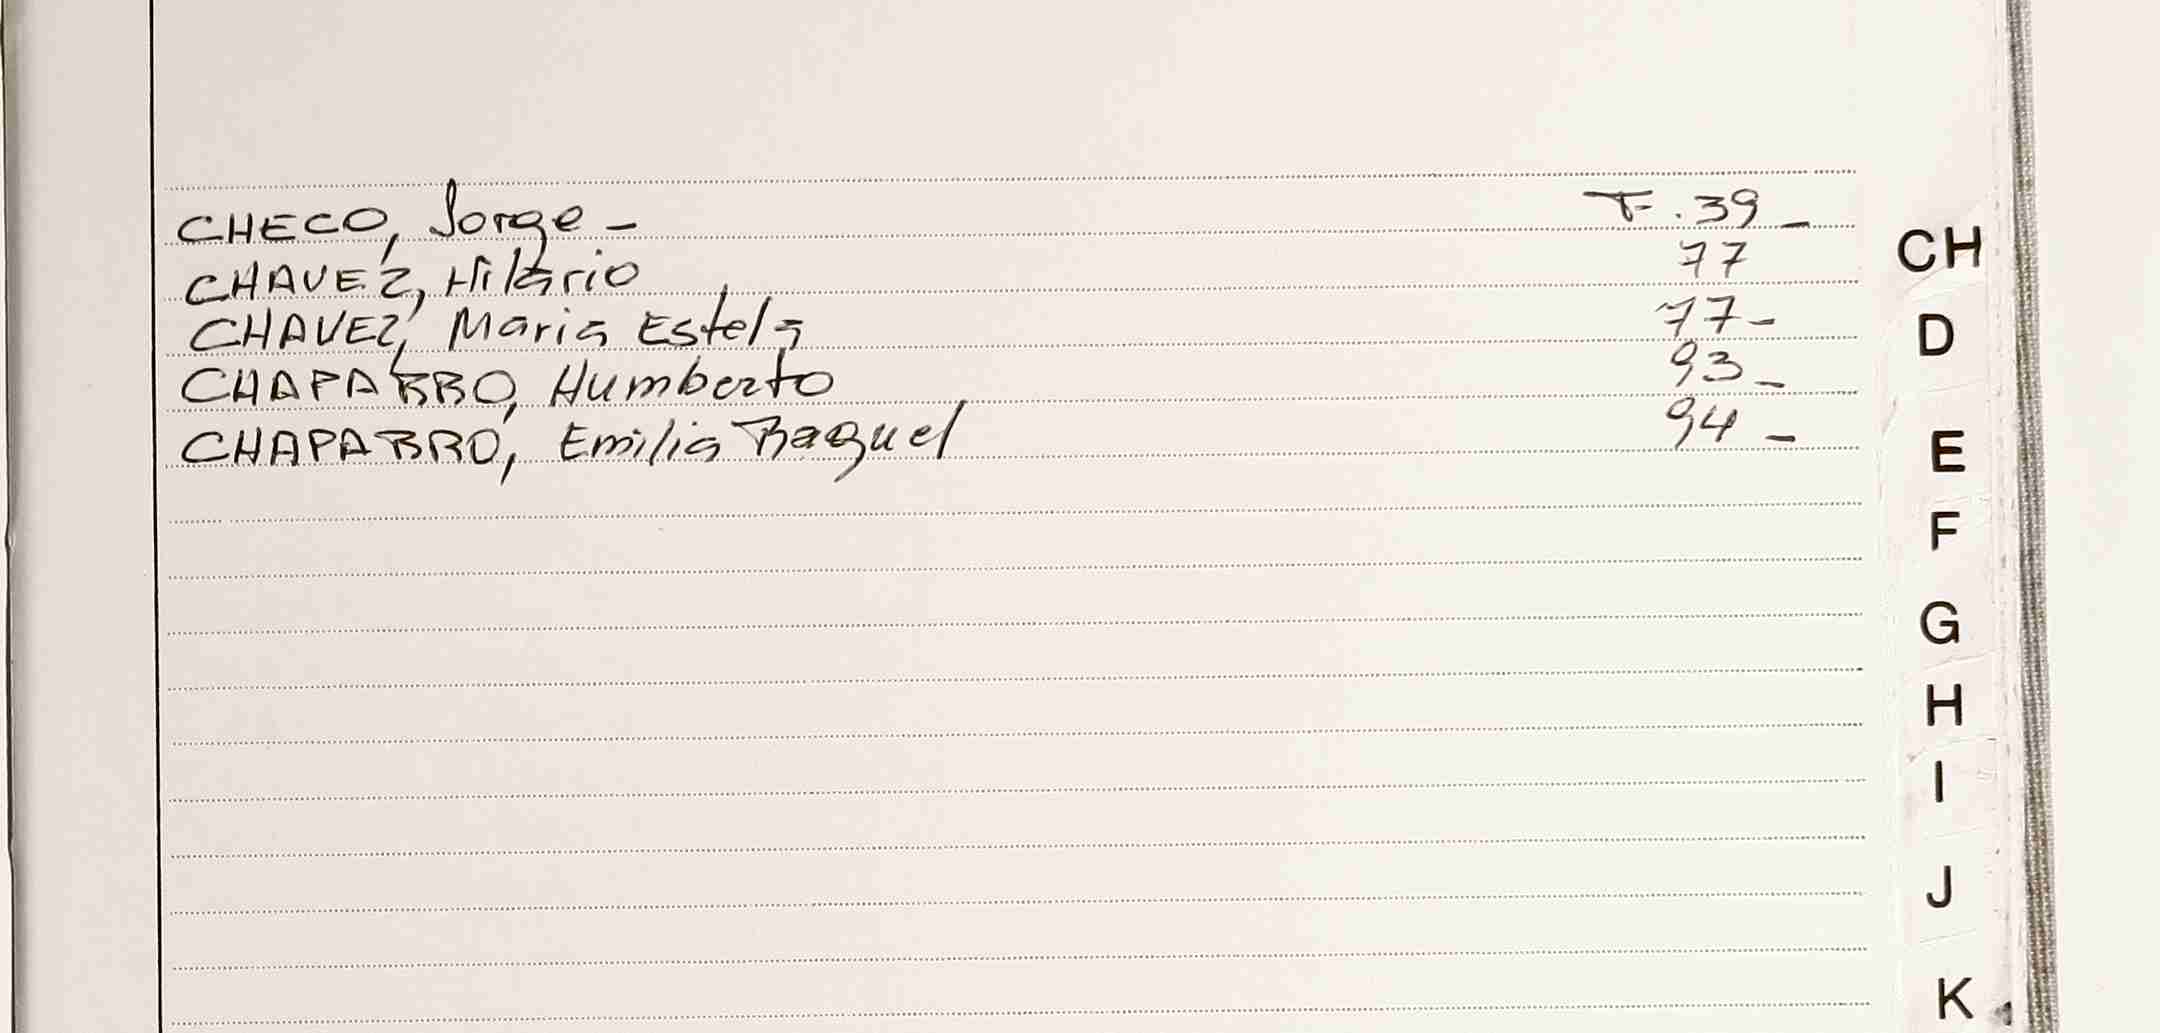 CHECO, Jorge - F. 39 -
CHAVEZ, Hilario 77
CHAVEZ, Maria Estela 77 -
CHAPARRO, Humberto 93 -
CHAPARRO, Emilia Raquel 94 -
CH
D
E
F
G
H
I
J
K